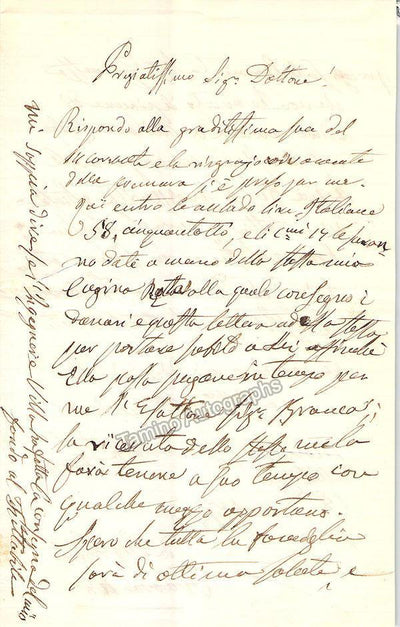 Pregiatissimo Sigr. Dottore!
Rispondo alla graditissima sua del
corrente e la ringrazio
della premura si è preso per me.
Qui entro le accludo lire Italiane
58, cinquantotto, e li cmi 17 le saran
no date a mano dalla stessa mia
cugina alla quale consegno i
danari e questa lettera
per portare subito a Lei affinché
Ella possa pagare in tempo per
me l' Sigr. Branca;
la ricevuta dello stesso me la
farà tenere a suo tempo con
qualche mezzo opportuno.
Spero che tutta la famiglia
sarà di ottima salute, e
Mi sappia dire se l'Ingegnere ha fatto la consegna del mio
fondo al
Tamino Autographs